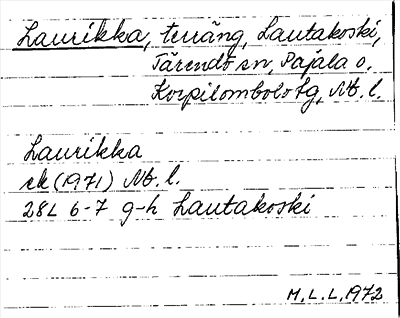 Laurikka, terräng, Lautakoski,
Tärendö sn, Pajala o.
Korpilombolo tg, Nb. l.
Laurikka
ek (1971) Nb. l.
28L 6-7 g-h Lautakoski
M.L.L. 1972